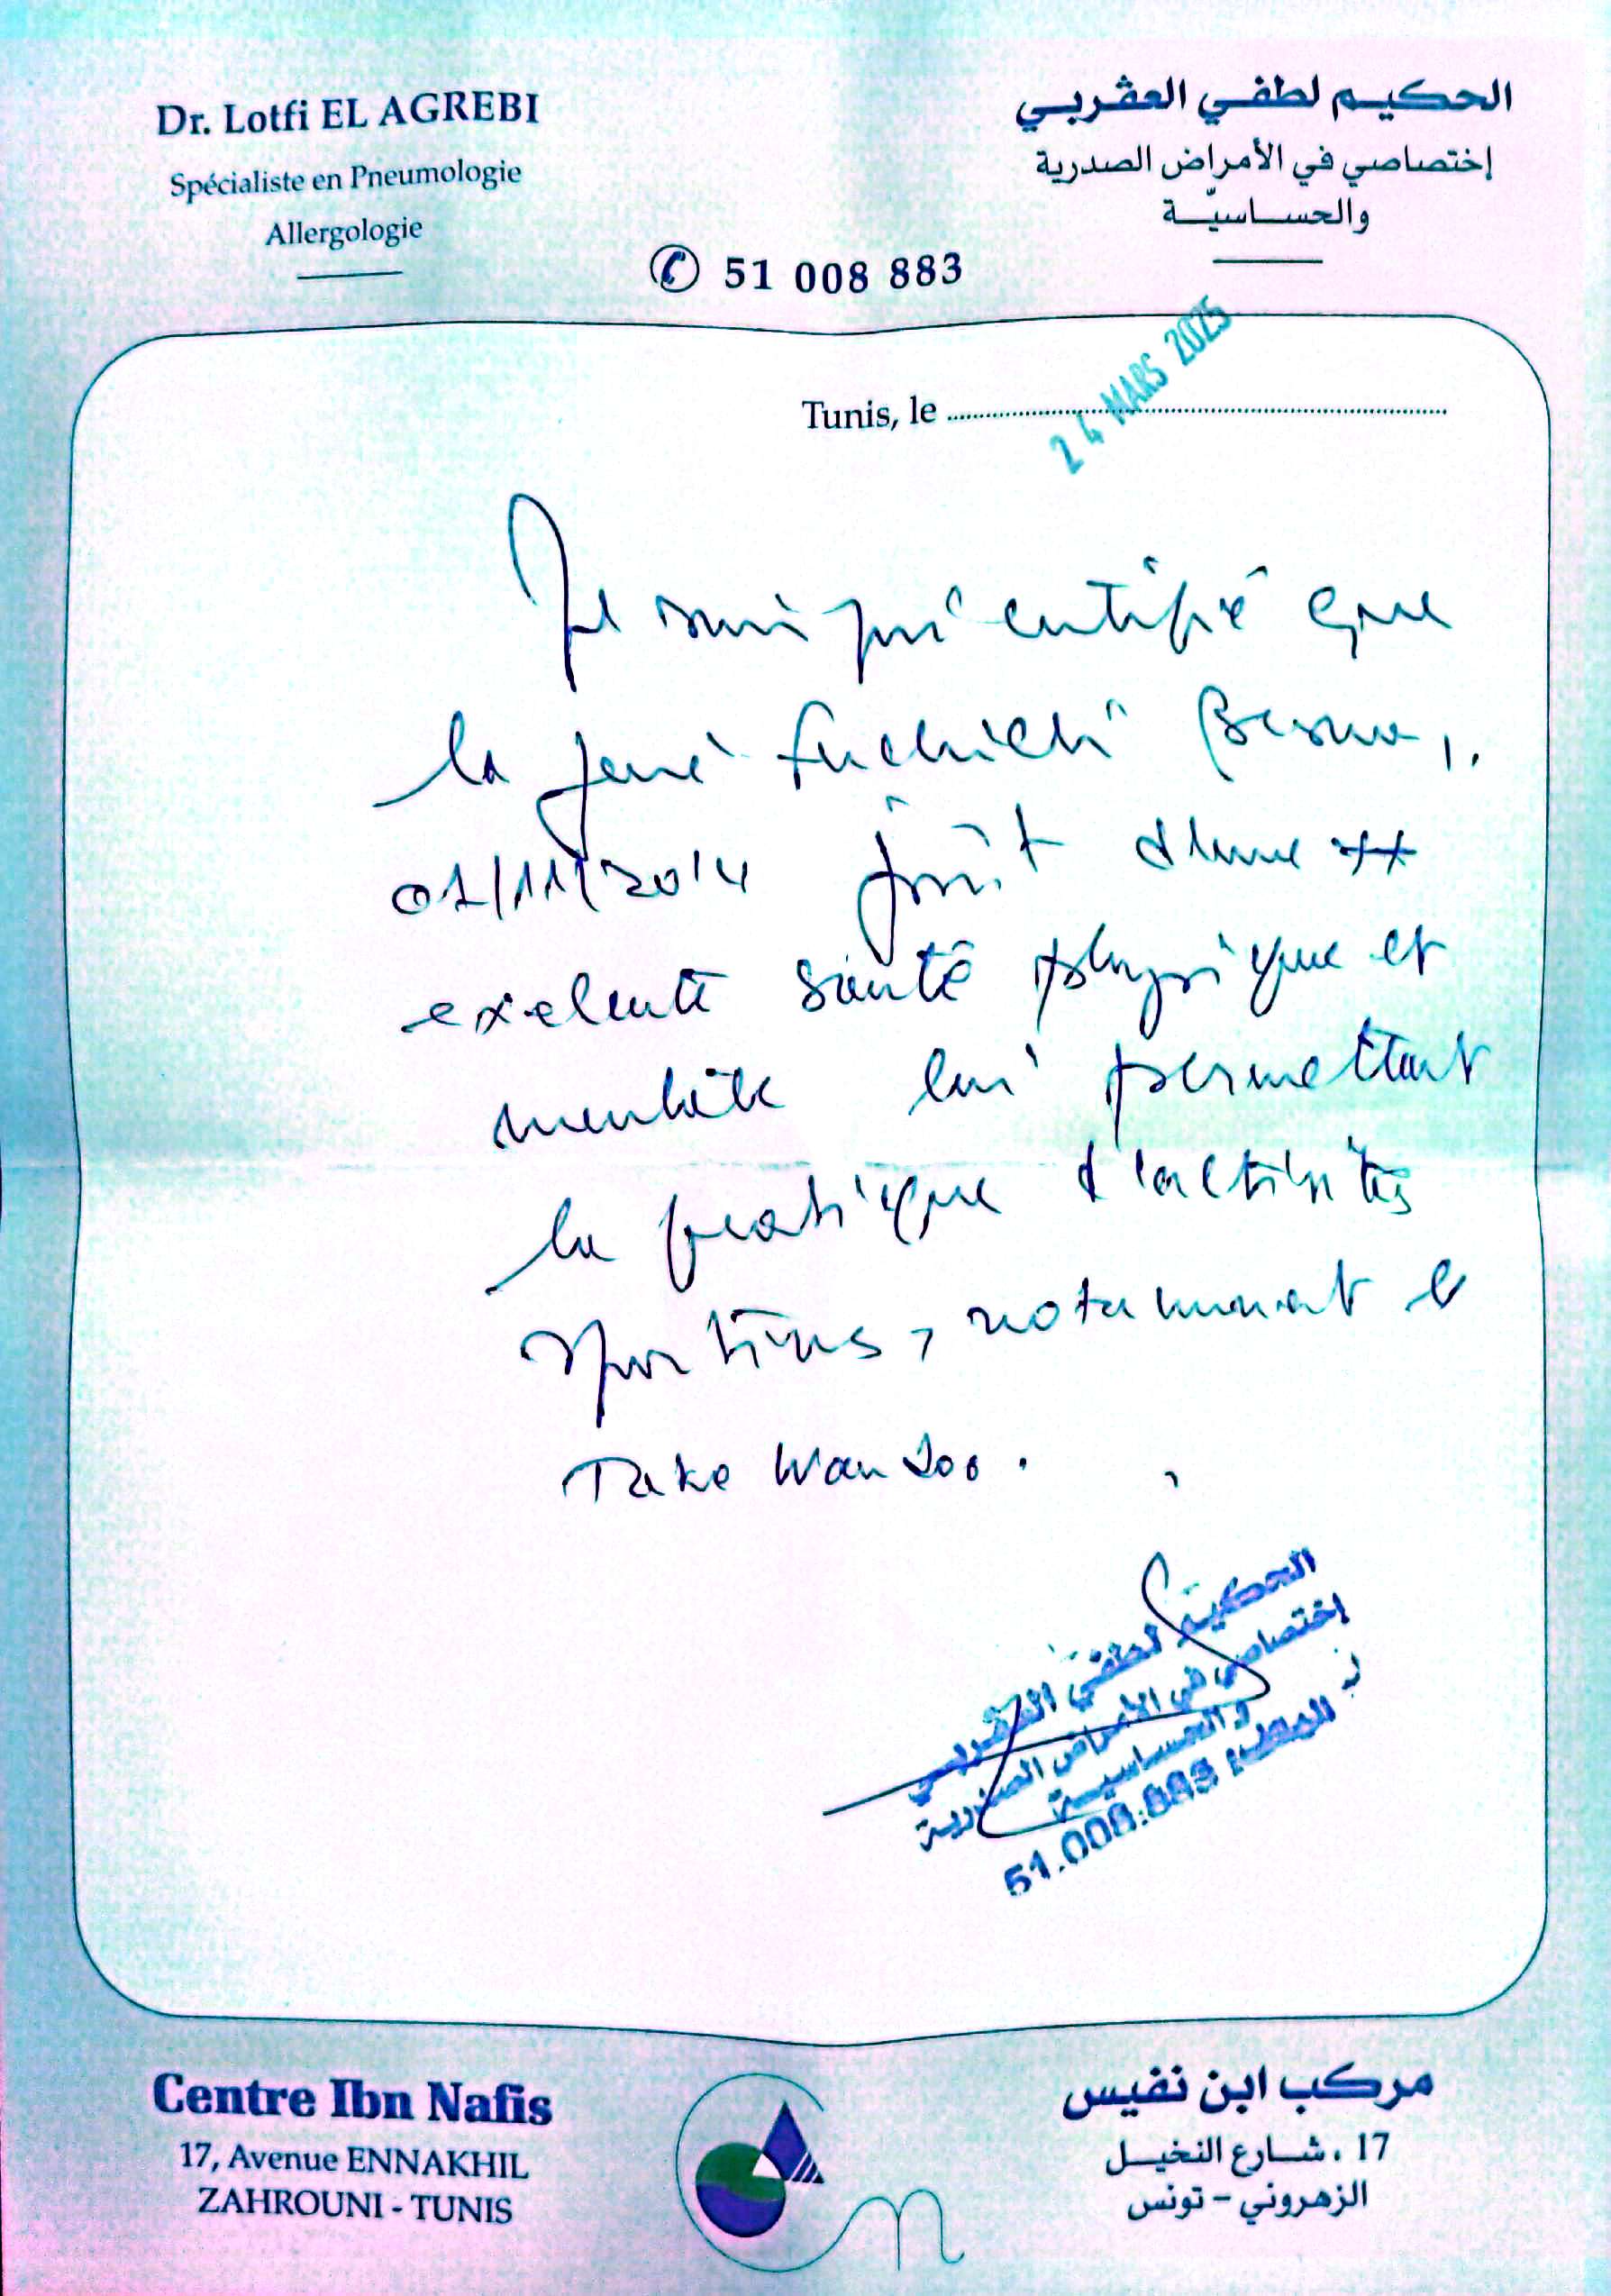 Dr. Lotfi EL AGREBI
Spécialiste en Pneumologie
Allergologie
الحكيم لطفي العقربي
إختصاصي في الأمراض الصدرية
والحساسيّة
✆ 51 008 883
Tunis, le
24 MARS 2025
Je certifié que
la
01/11/2014 jouit d'une
exelente santé physique et
mentale lui permettant
la pratique d'activités
sportives, notamment le
Take Wan Doo.
الحكيم لطفي العقربي
إختصاصي في الأمراض الصدرية
والحساسية
51.008.883
Centre Ibn Nafis
17, Avenue ENNAKHIL
ZAHROUNI - TUNIS
مركب ابن نفيس
17 ، شارع النخيل
الزهروني - تونس